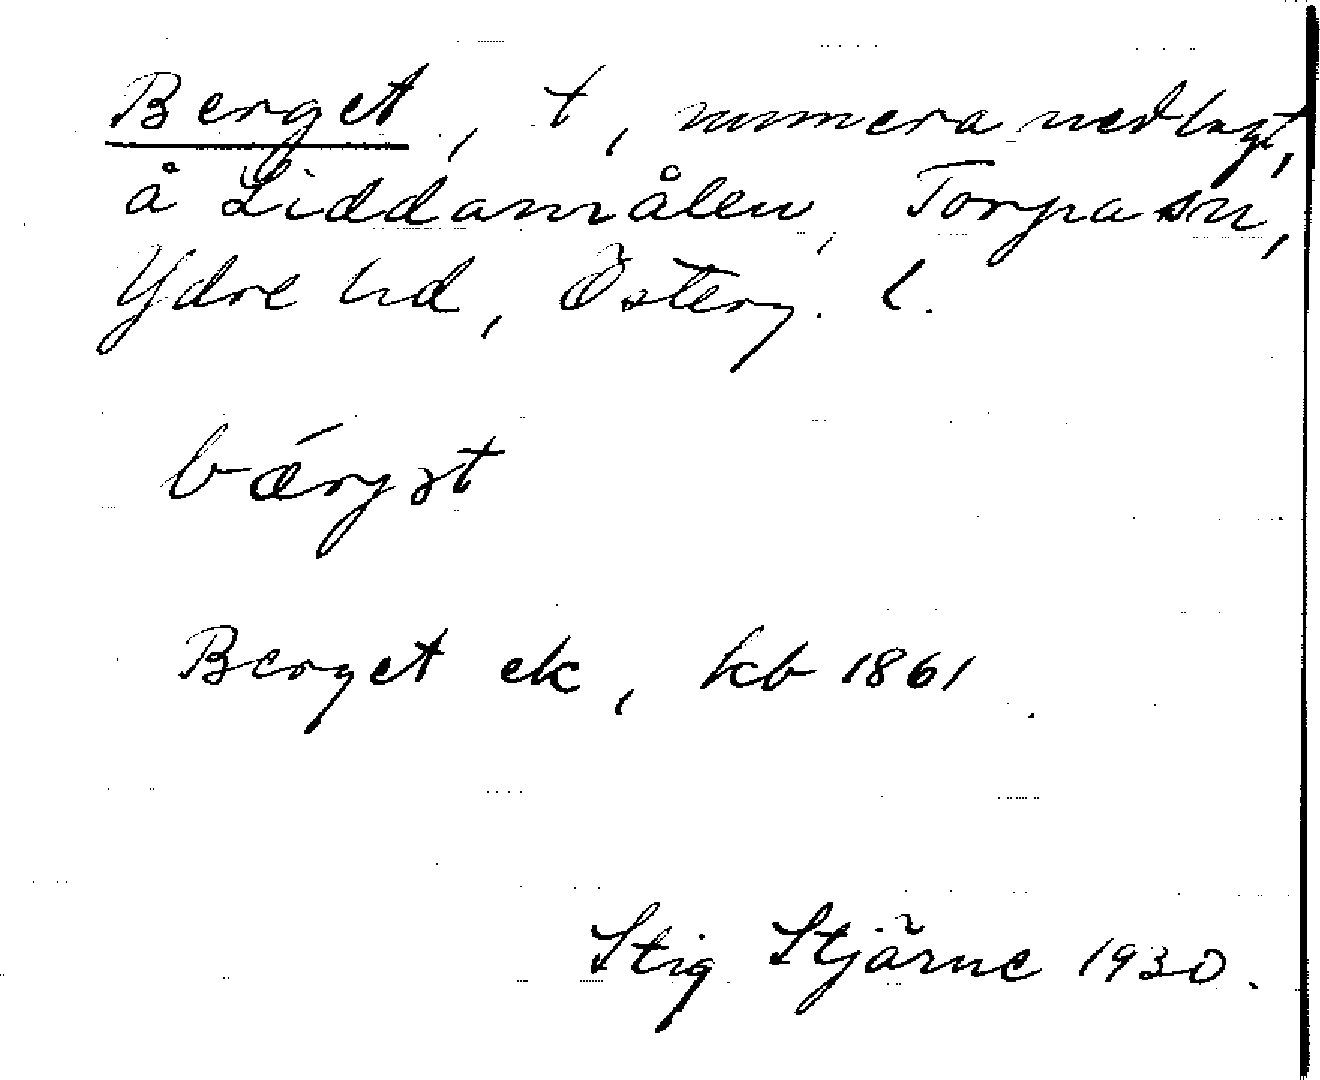 Berget, t, numera nedlagt,
å Liddamålen, Torpa sn,
Ydre hd, Österg. l.
bǽrgət
Berget ek, kb 1861.
Stig Stjärne 1930.